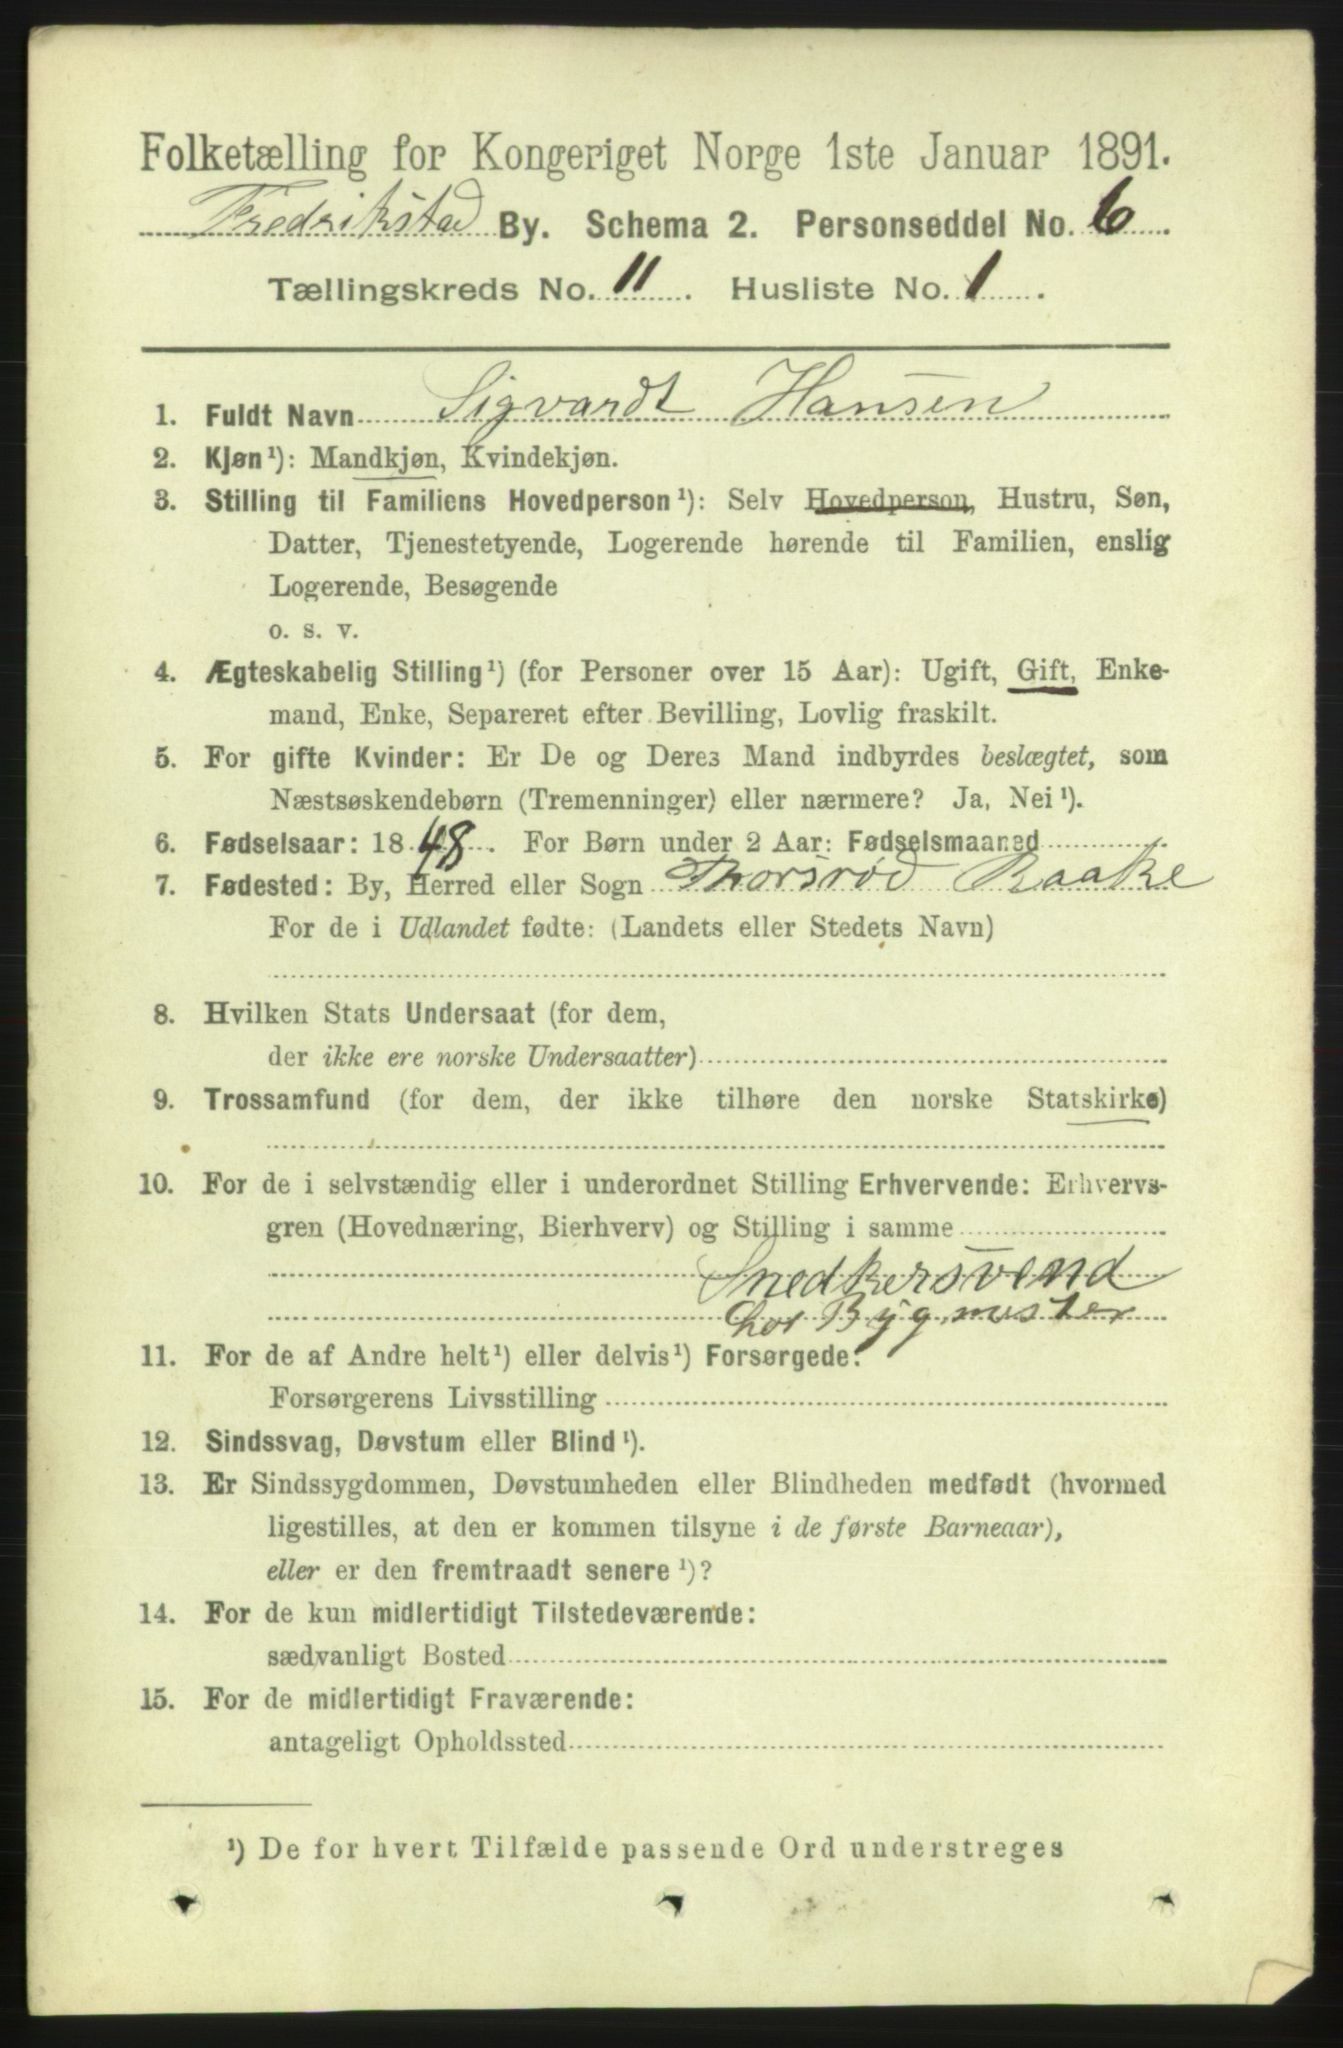 Folketælling for Kongeriget Norge 1ste Januar 1891.
Fredrikstad By. Schema 2. Personseddel No. 6
Tællingskreds No. 11. Husliste No. 1.
1. Fuldt Navn Sigvardt Hansen
2. Kjøn¹): Mandkjøn, Kvindekjøn.
3. Stilling til Familiens Hovedperson¹): Selv Hovedperson, Hustru, Søn,
Datter, Tjenestetyende, Logerende hørende til Familien, enslig
Logerende, Besøgende
o. s. v.
4. Ægteskabelig Stilling¹) (for Personer over 15 Aar): Ugift, Gift, Enke-
mand, Enke, Separeret efter Bevilling, Lovlig fraskilt.
5. For gifte Kvinder: Er De og Deres Mand indbyrdes beslægtet, som
Næstsøskendebørn (Tremenninger) eller nærmere? Ja, Nei¹).
6. Fødselsaar: 1848. For Børn under 2 Aar: Fødselsmaaned
7. Fødested: By, Herred eller Sogn Thorsrød Raake
For de i Udlandet fødte: (Landets eller Stedets Navn)
8. Hvilken Stats Undersaat (for dem,
der ikke ere norske Undersaatter)
9. Trossamfund (for dem, der ikke tilhøre den norske Statskirke)
10. For de i selvstændig eller i underordnet Stilling Erhvervende: Erhvervs-
gren (Hovednæring, Bierhverv) og Stilling i samme
Snedkersvend
hos Bygmester
11. For de af Andre helt¹) eller delvis¹) Forsørgede:
Forsørgerens Livsstilling
12. Sindssvag, Døvstum eller Blind¹).
13. Er Sindssygdommen, Døvstumheden eller Blindheden medfødt (hvormed
ligestilles, at den er kommen tilsyne i de første Barneaar),
eller er den fremtraadt senere¹)?
14. For de kun midlertidigt Tilstedeværende:
sædvanligt Bosted
15. For de midlertidigt Fraværende:
antageligt Opholdssted
¹) De for hvert Tilfælde passende Ord understreges